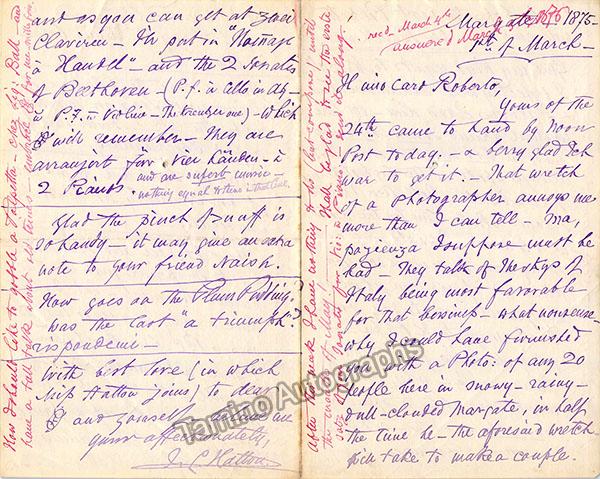 Margate 1875
1st of March —
recd March 4th
answered March
Il mio Caro Roberto,
Yours of the
24th came to hand by Noon
Post today. — & berry glad Ich
war to get it. — That wretch
of a photographer annoys me
more than I can tell — Ma,
pazienza I suppose must be
had — They talk of the skys of
Italy being most favorable
for that bessiniss — what nonsense —
why I could have furnished
you with a Photo: of any 20
people here in snowy — rainy —
dull-clouded Margate, in half
the time he — the aforesaid wretch
will take to make a couple.
and as you can get at zwei
Claviere — I'll put in "Homage
à Handel" — and the 2 Sonatas
of Beethoven — (P.f. in
P.F. Violin — The Kreutzer one) — Which
will remember — They are
arrangirt für vier Händen — à
2 Pianos.
and are superb music —
nothing equal to them in that line.
Glad the pinch of snuff is
so handy — it may give an extra
note to your friend Naish.
How goes on the Plum Pudding?
was the last "a triumph"?
rispondemi —
With best love (in which
Miss Hatton joins) to dear
and yourself
yours affectionately,
J. L. Hatton
How I should like to possess a
have a talk about old times
after this week I have nothing to do
the end of May — shall be glad to see the
Tamino Autographs